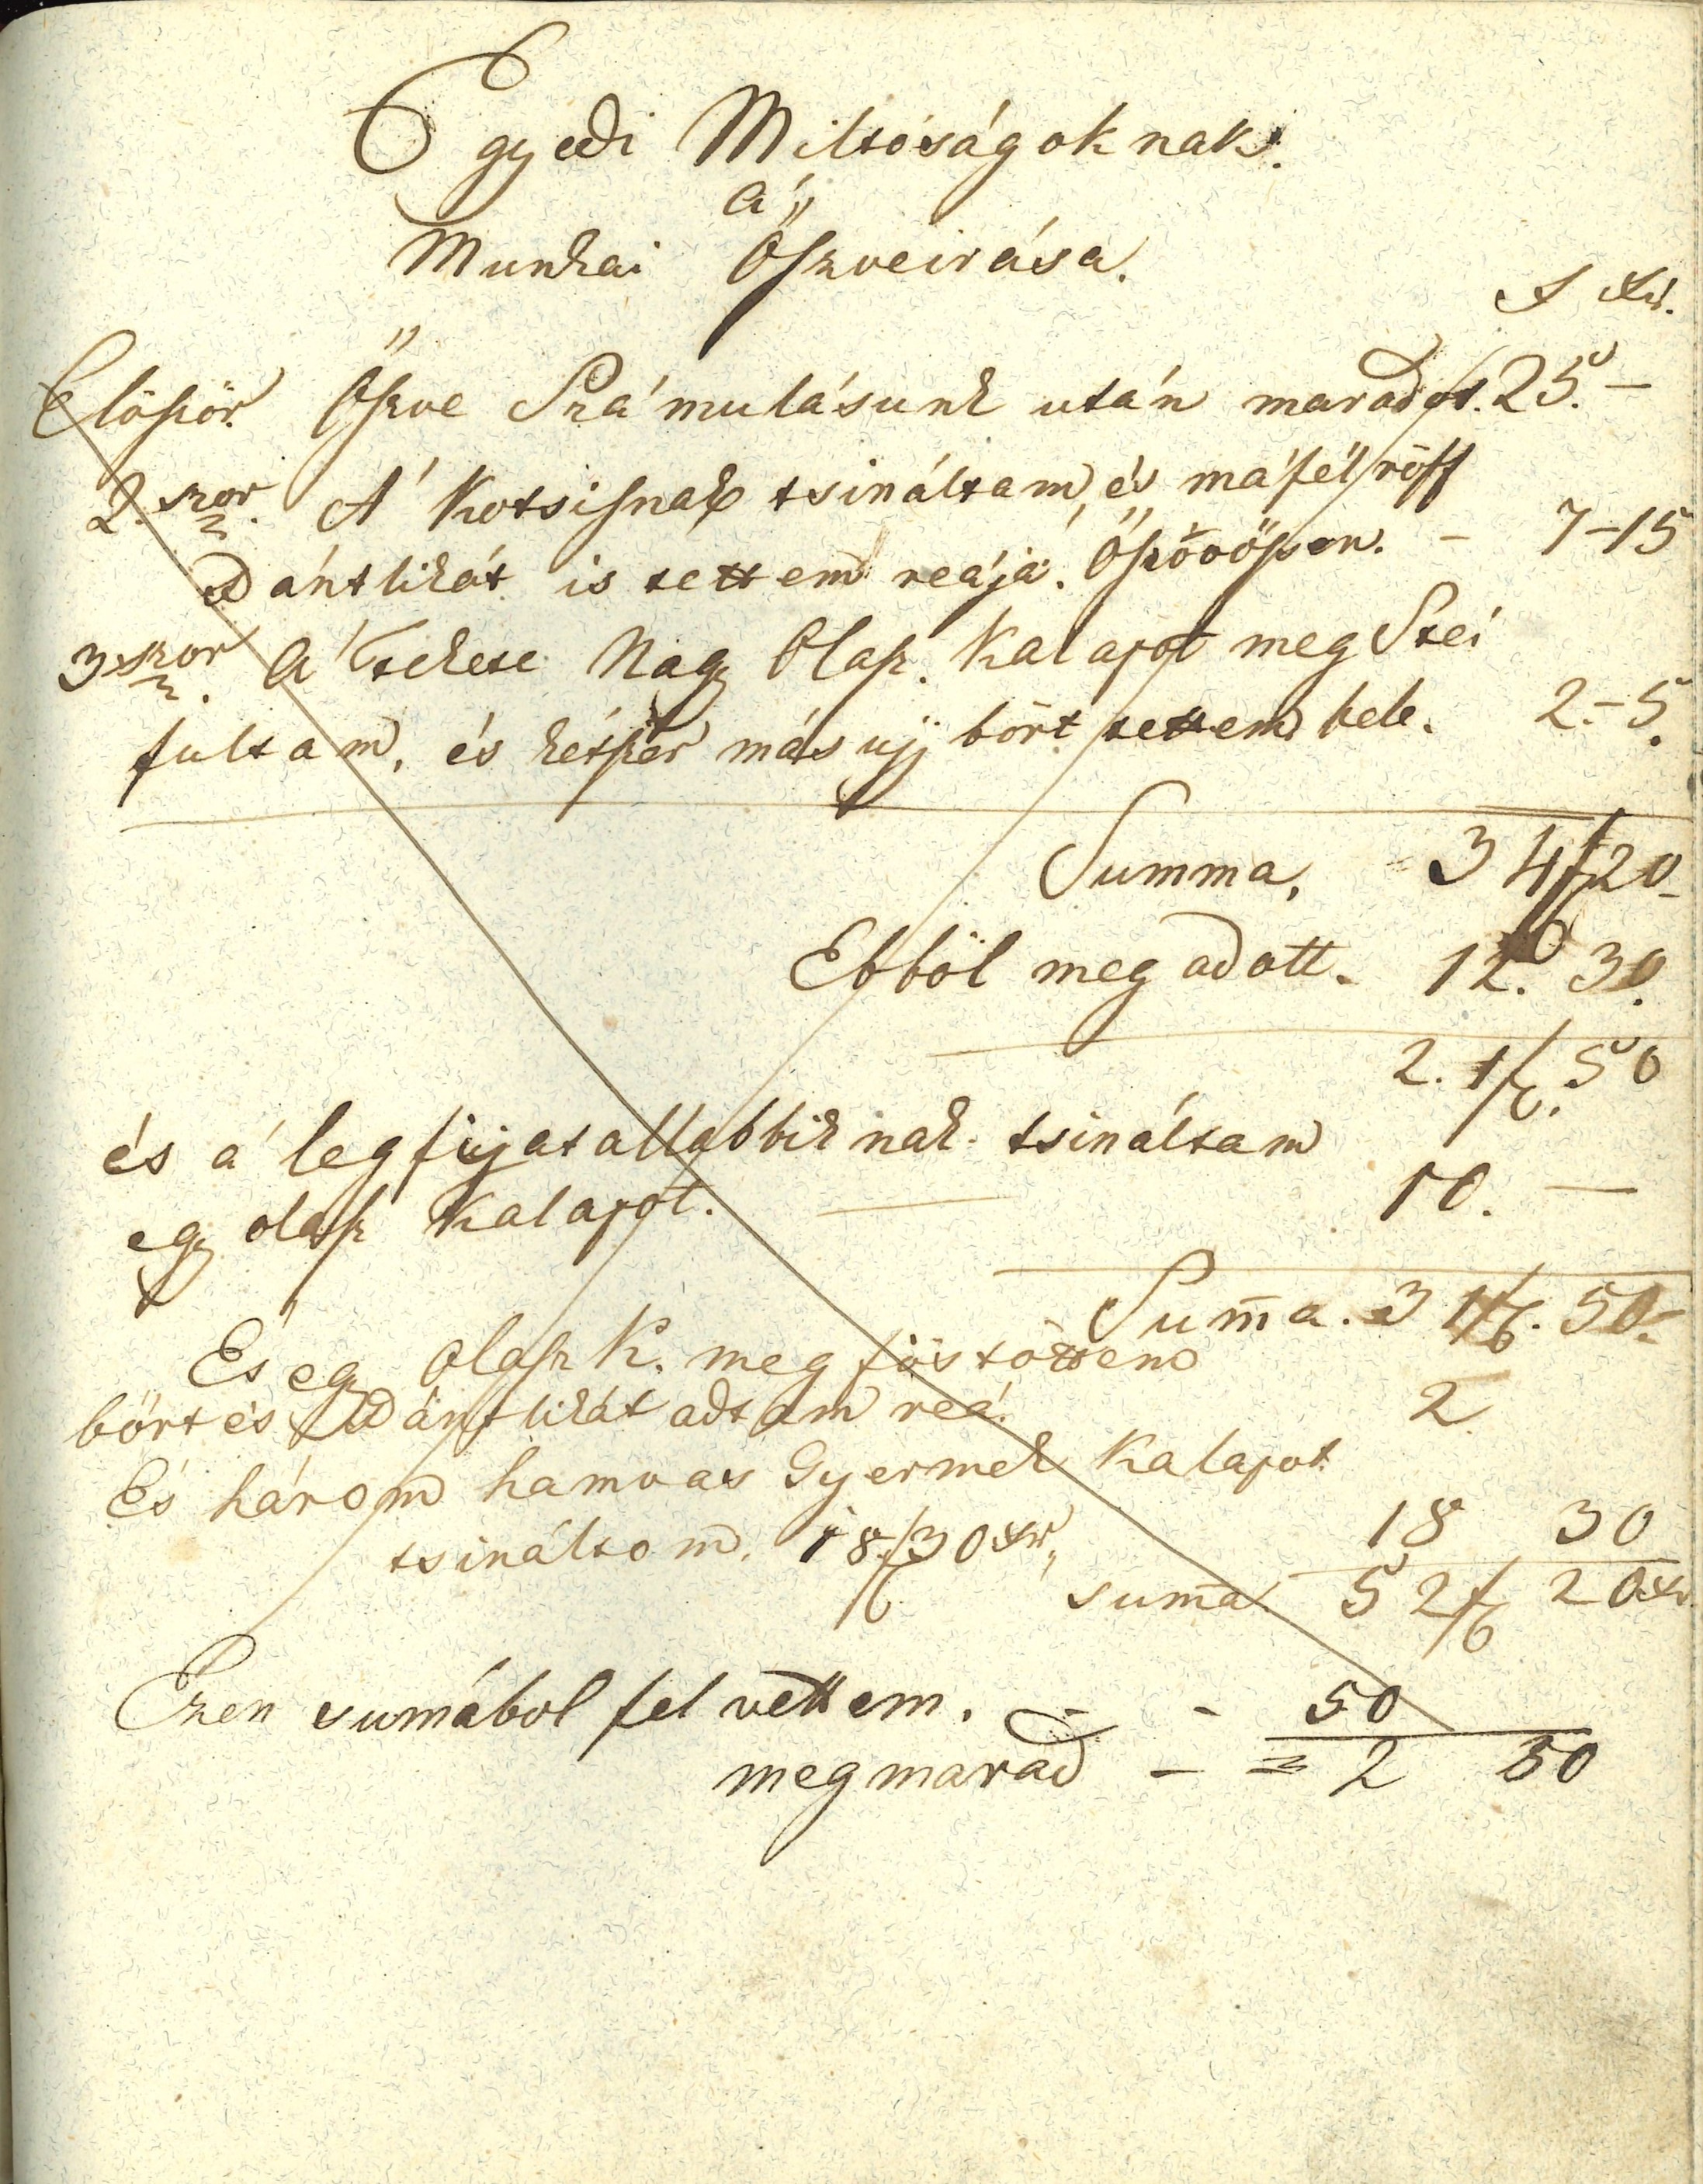 Egyedi Miltóságoknak.
a'
Munkai Öszveirása.
f xr.
Elöször Öszve Számulásunk után maradot. 25. —
2. szor. A' Kotsisnak tsináltam, és másfél röff
pántlikát is tettem reája. Öszövösen. - 7-15
3 szor. A' fekete Nagy Olasz. Kalapot meg Stei
fultam, és kétszer más ujj bört tettem bele. 2.-5.
Summa, 34f 20
Ebböl meg adott. 12. 30.
2.1f. 50
és a' legfijatallabbiknak tsináltam
egy olasz Kalapot. — 10. —
Suma. 31f. 50.
És egy olasz K. meg föstöttem
bört és pántlikát adtam reá. 2.
És három hamvas Gyermek Kalapot
tsináltom. 18f 30xr, 18 30
suma. 52f 20xr
Ezen sumábol fel vettem. - - 50
megmarad — = 2 50